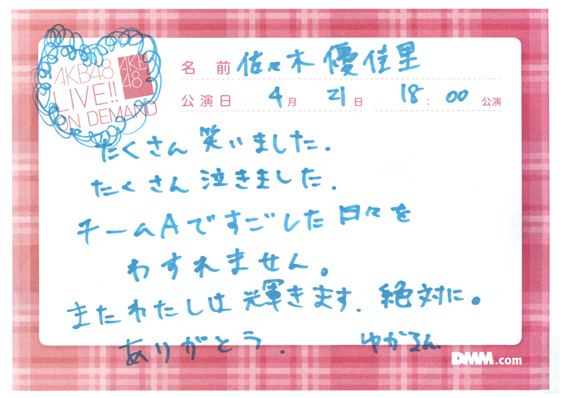 AKB48
LIVE!!
ON DEMAND
AKB
48
名 前 佐々木 優佳里
公演日 4月 21日 18:00 公演
たくさん 笑いました.
たくさん 泣きました.
チームAですごした日々を
わすれません。
またわたしは 輝きます. 絶対に。
ありがとう. ゆかるん
DMM.com